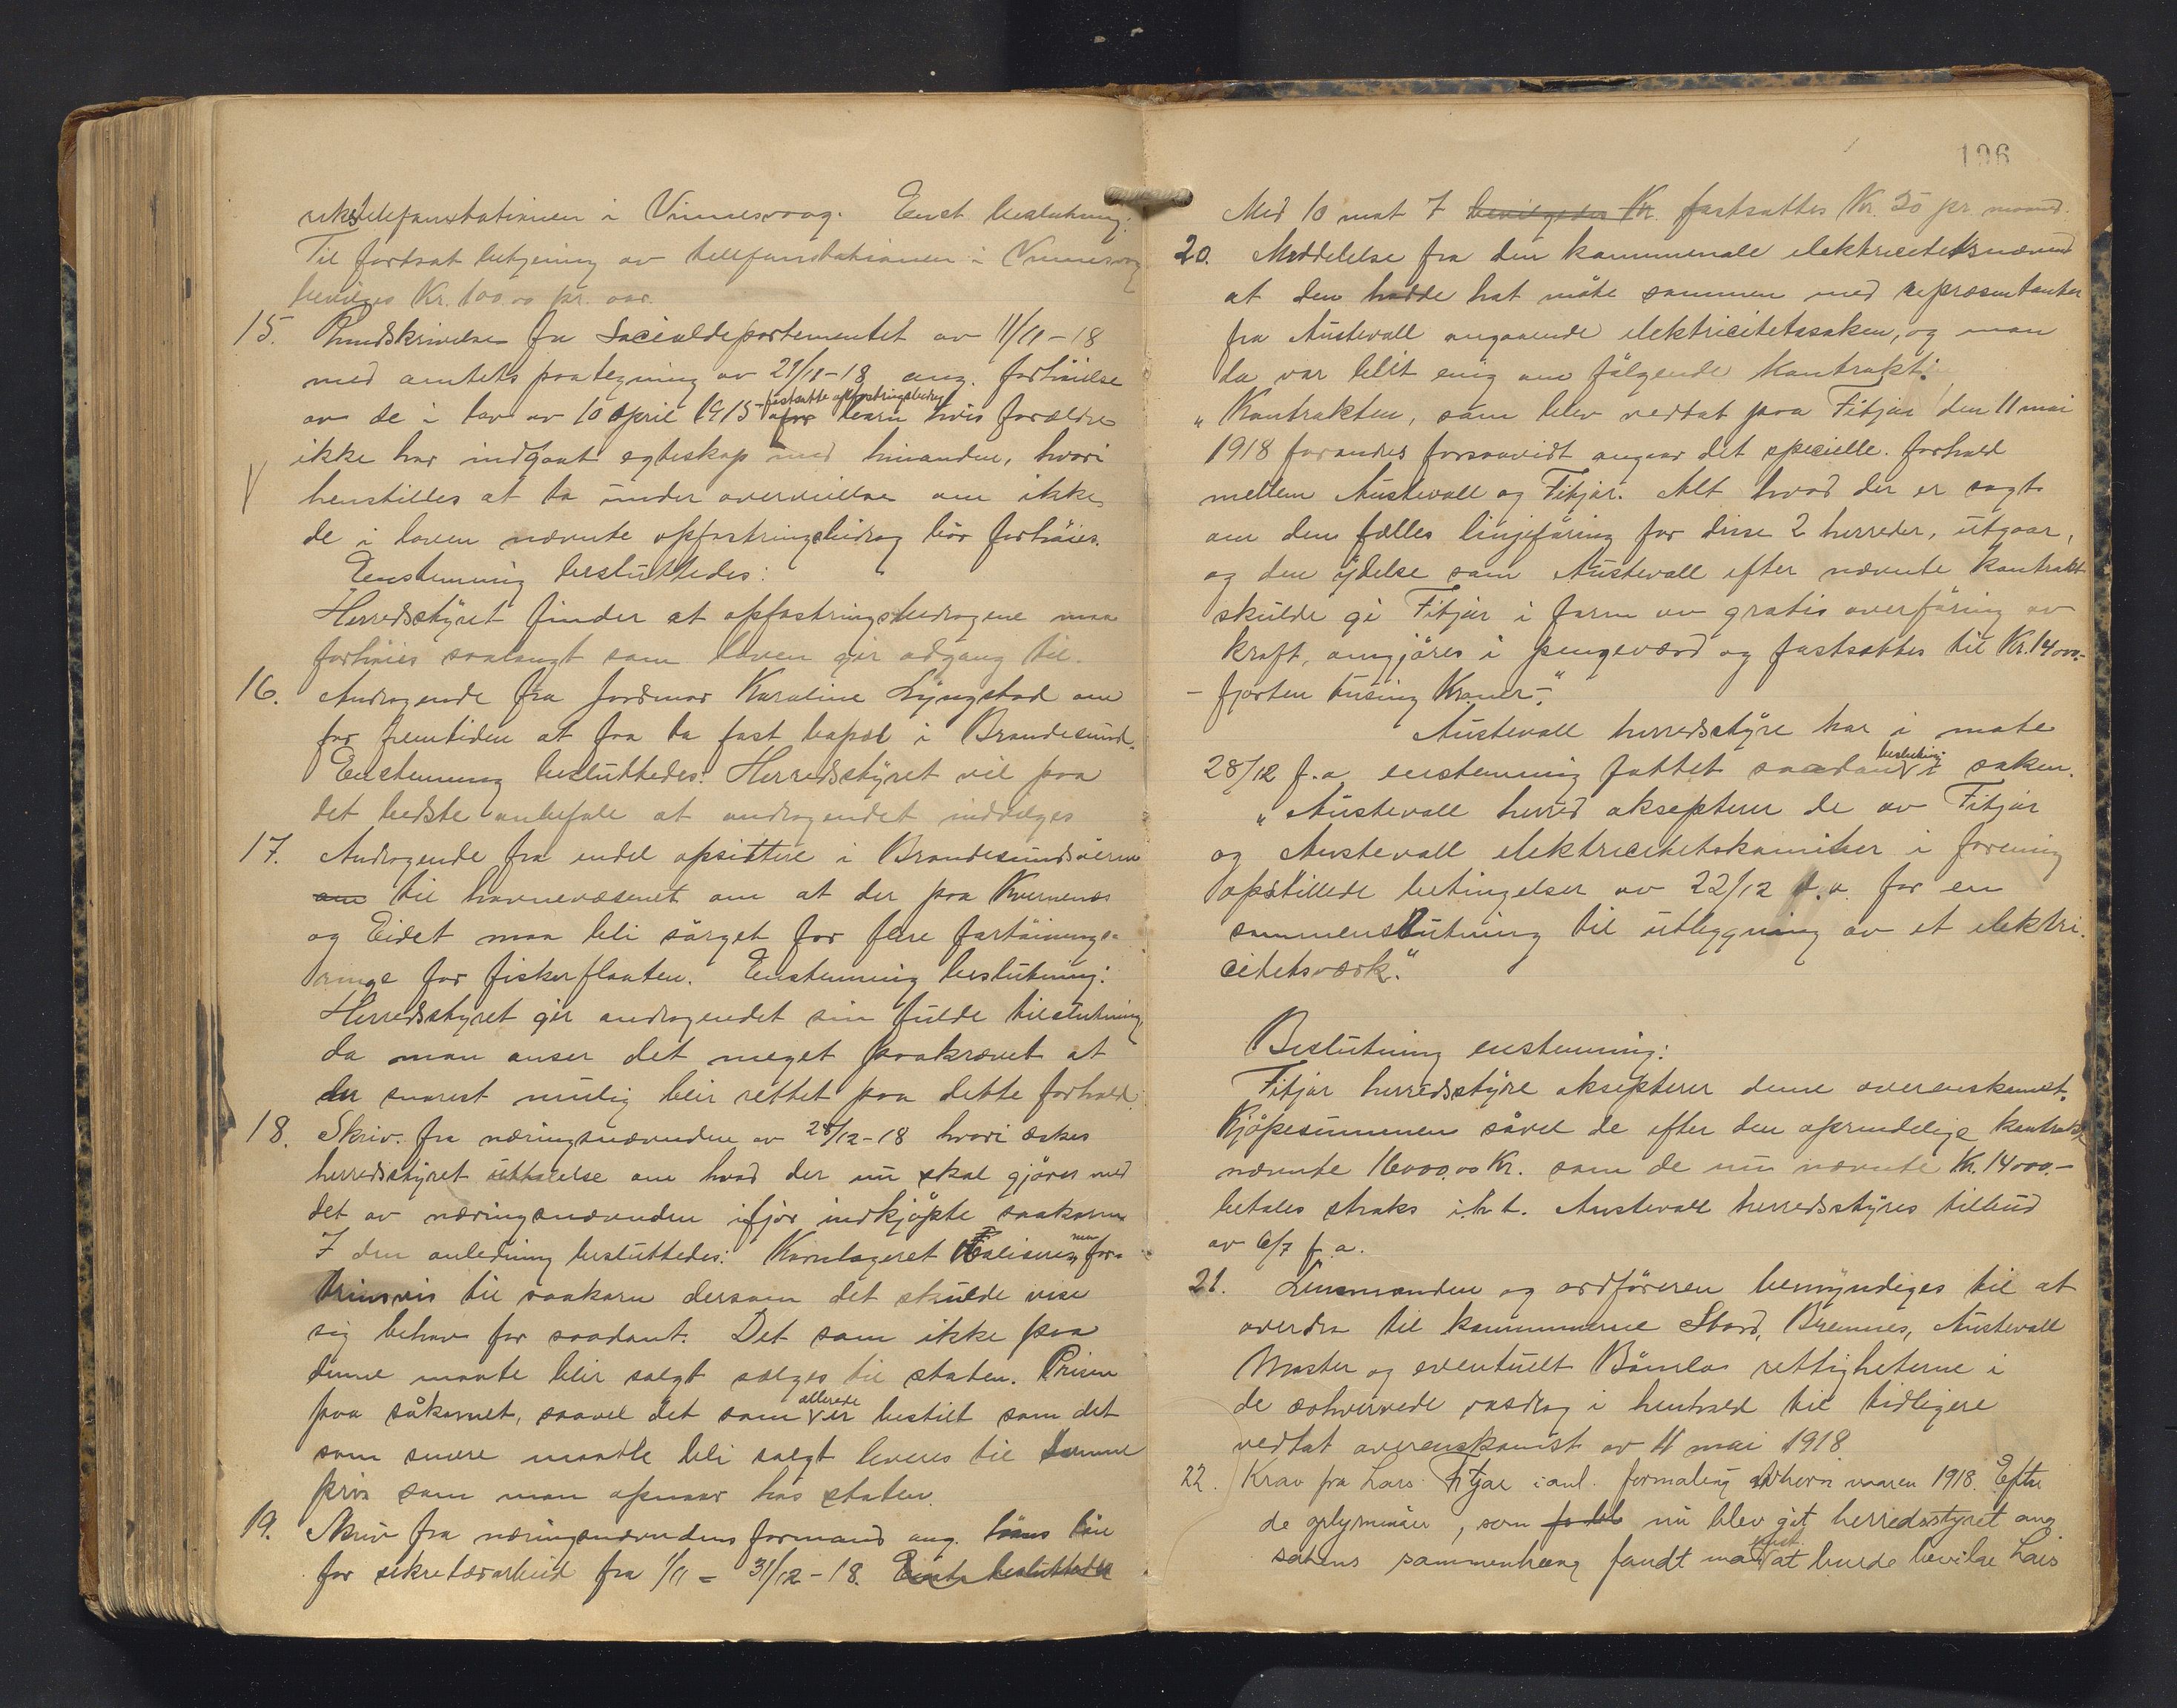 rikstelefonstationen i Vinnesvaag. Enst beslutning:
Til fortsat betjening av telefonstationen i Vinnesvaag
bevilges Kr. 100.00 pr. aar.
15. Rundskrivelse fra Socialdepartementet av 11/11-18
med amtets paategning av 21/11-18 ang. forhöielse
av de i lov av 10 april 1915 fastsatte opfostringsbidrag for barn hvis forældre
ikke har indgaat egteskap med hinanden, hvori
henstilles at ta under overveielse om ikke
de i loven nævnte opfostringsbidrag bör forhöies.
Enstemmig besluttedes:
Herredsstyret finder at opfostringsbidragene maa
forhöies saalangt som loven gir adgang til.
16. Andragende fra jordmor Karoline Lyngstad om
for fremtiden at faa ta fast bopæl i Brandesund.
Enstemmig besluttedes: Herredsstyret vil paa
det bedste anbefale at andragendet inddvilges
17. Andragende fra endel opsittere i Brandesundsöerne
om til havnevæsenet om at der paa Kvernenes
og Eidet maa bli sörget for flere fortöinings-
ringe for fiskerflaaten. Enstemmig beslutning:
Herredsstyret gir andragendet sin fulde tilslutning,
da man anser det meget paakrævet at
der snarest mulig blir rettet paa dette forhold.
18. Skriv. fra næringsnævnden av 28/12-18 hvori æskes
herredsstyret uttalelse om hvad der nu skal gjöres med
det av næringsnævnden ifjor indkjöpte saakorn
I den anledning besluttedes: Kornlageret realiseres men for-
trinsvis til saakorn dersom det skulde vise
sig behov for saadant. Det som ikke paa
denne maate blir solgt sælges til staten. Prisen
paa såkornet, saavel det som allerede er bestilt som det
som senere maatte bli solgt leveres til samme
pris som man opnaar hos staten.
19. Skriv fra næringsnævndens formand ang. löns lön
for sekretærarbeid fra 1/11 - 31/12-18. Enst. besluttedes
106
Med 10 mot 7 bevilgedes Kr. fastsattes Kr. 50 pr. maaned.
20. Meddelelse fra den kommunale elektricitetsnævnd
at den hadde hat möte sammen med repræsentanter
fra Austevoll angaaende elektricitetssaken, og man
da var blit enig om fölgende kontrakt:
"Kontrakten, som blev vedtat paa Fitjar den 11 mai
1918 forandres forsaavidt angaar det specielle forhold
mellem Austevoll og Fitjar. Alt hvad der er sagt
om den fælles linjeföring for disse 2 herreder, utgaar,
og den ydelse som Austevoll efter nævnte kontrakt
skulde gi Fitjar i form av gratis overföring av
kraft, omgjöres i pengeværd og fastsattes til Kr. 14000.-
- fjorten tusing Kroner-".
Austevoll herredsstyre har i möte
28/12 f.a. enstemmig fattet saadan beslutning i saken.
"Austevoll herred aksepterer de av Fitjar
og Austevoll elektricitetskomiteer i forening
opstillede betingelser av 22/12 d.a. for en
sammenslutning til utbygning av et elektri-
citetsværk."
Beslutning enstemmig:
Fitjar herredsstyre aksepterer denne overenskomst.
Kjöpesummen såvel de efter den oprindelige kontrakt
nævnte 16000.00 Kr. som de nu nævnte Kr. 14000.-
betales straks i.h.t. Austevoll herredsstyres tilbud
av 6/7 f.a.
21. Lensmanden og ordföreren bemyndiges til at
overdra til kommunerne Stord, Bremnes, Austevoll
Moster og eventuelt Bömlo rettigheterne i
de erhvervede vasdrag i henhold til tidligere
vedtat overenskomst av 11 mai 1918
22. Krav fra Lars Fitjar i anl. formaling av korn vaaren 1918. Efter
de oplysninger, som nu blev git herredsstyret ang.
sakens sammenheng fandt man enst. at burde bevilge Lars